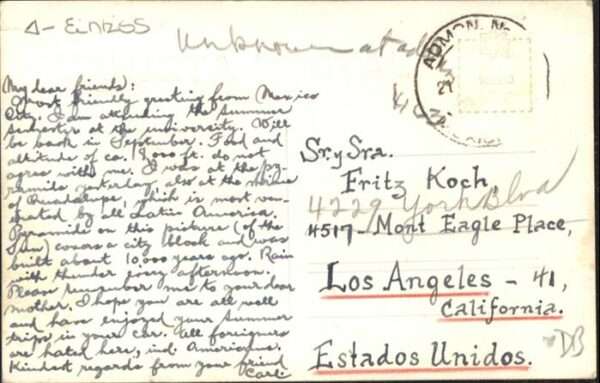 Unknown at
My dear friends:
Most friendly greeting from Mexico
City. I am attending the summer
semester at the university. Will
be back in September. Food and
altitude of ca. 8,000 ft. do not
agree with me. I was at the py-
ramids yesterday, also at the shrine
of Guadalupe, which is most ven-
erated by all Latin America.
Pyramide on this picture (of the
Sun) covers a city block and was
built about 10,000 years ago. Rain
with thunder every afternoon.
Please remember me to your dear
mother. I hope you are all well
and have enjoyed your summer
trips in your car. All foreigners
are hated here, incl. Americans.
Kindest regards from your friend
Carl.
ADMON.
21
Sr. y Sra.
Fritz Koch,
4229 York Blvd
4517 - Mont Eagle Place,
Los Angeles - 41,
California.
Estados Unidos.
DB